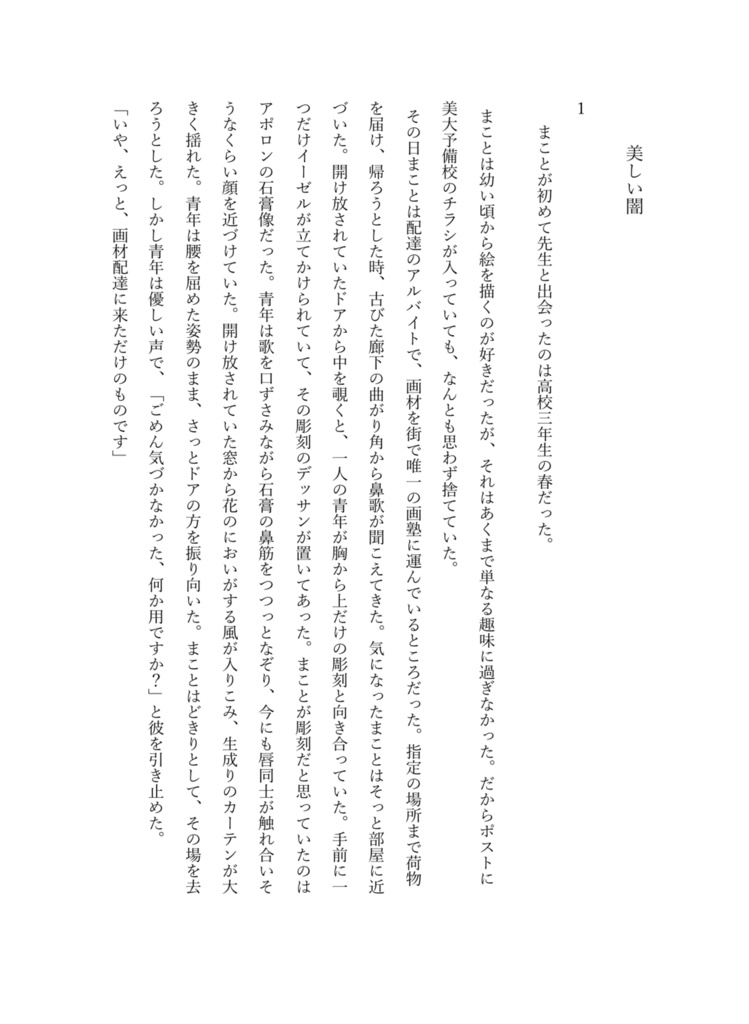 美しい闇
1
まことが初めて先生と出会ったのは高校三年生の春だった。
まことは幼い頃から絵を描くのが好きだったが、それはあくまで単なる趣味に過ぎなかった。だからポストに
美大予備校のチラシが入っていても、なんとも思わず捨てていた。
その日まことは配達のアルバイトで、画材を街で唯一の画塾に運んでいるところだった。指定の場所まで荷物
を届け、帰ろうとした時、古びた廊下の曲がり角から鼻歌が聞こえてきた。気になったまことはそっと部屋に近
づいた。開け放されていたドアから中を覗くと、一人の青年が胸から上だけの彫刻と向き合っていた。手前に一
つだけイーゼルが立てかけられていて、その彫刻のデッサンが置いてあった。まことが彫刻だと思っていたのは
アポロンの石膏像だった。青年は歌を口ずさみながら石膏の鼻筋をつつっとなぞり、今にも唇同士が触れ合いそ
うなくらい顔を近づけていた。開け放されていた窓から花のにおいがする風が入りこみ、生成りのカーテンが大
きく揺れた。青年は腰を屈めた姿勢のまま、さっとドアの方を振り向いた。まことはどきりとして、その場を去
ろうとした。しかし青年は優しい声で、「ごめん気づかなかった、何か用ですか?」と彼を引き止めた。
「いや、えっと、画材配達に来ただけのものです」